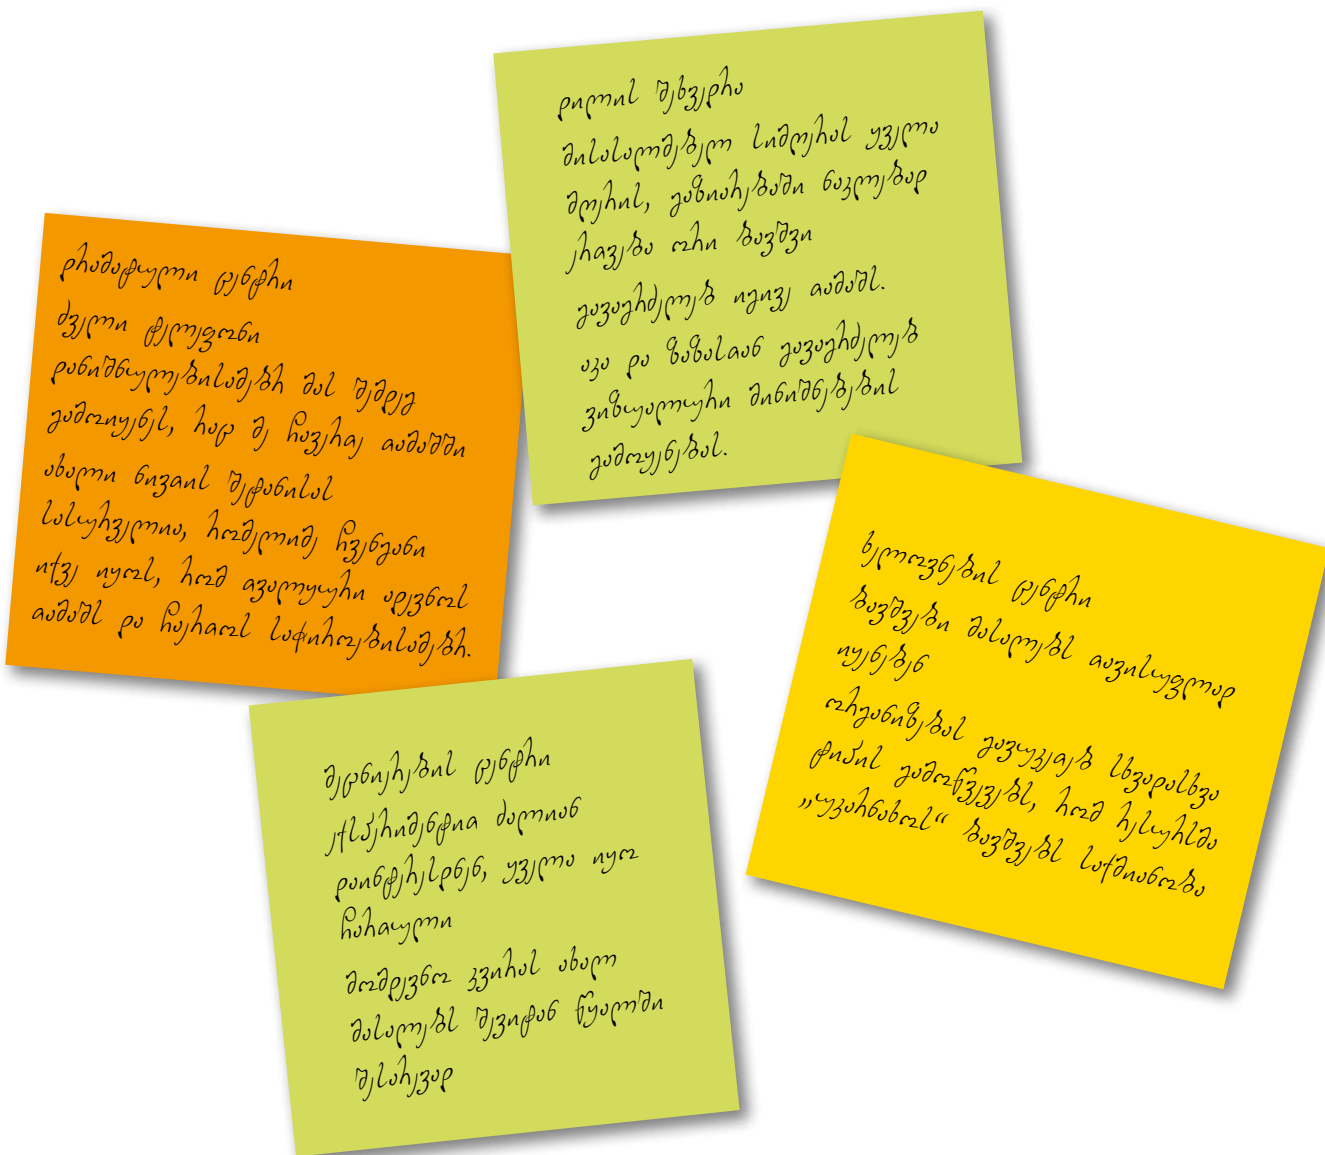 დილის შეხვედრა
მისასალმებელ სიმღერას ყველა
მღერის, გაზიარებაში ნაკლებად
ერთვება ორი ბავშვი
გავაგრძელებ იგივე თამაშს.
აკა და ზაზასთან გავაგრძელებ
ვიზუალური მინიშნებების
გამოყენებას.
დრამატული ცენტრი
ძველი ტელეფონი
დანიშნულებისამებრ მას შემდეგ
გამოიყენეს, რაც მე ჩავერთე თამაშში
ახალი ნივთის შეტანისას
სასურველია, რომელიმე ჩვენგანი
იქვე იყოს, რომ თვალყური ადევნოს
თამაშს და ჩაერთოს საჭიროებისამებრ.
ხელოვნების ცენტრი
ბავშვები მასალებს თავისუფლად
იყენებენ
ორგანიზებას გავუკეთებ სხვადასხვა
ტიპის გამოწვევებს, რომ რესურსმა
„უკარნახოს“ ბავშვებს საქმიანობა
მეცნიერების ცენტრი
ექსპერიმენტით ძალიან
დაინტერესდნენ, ყველა იყო
ჩართული
მომდევნო კვირას ახალ
მასალებს შევიტან წყალში
შესარევად